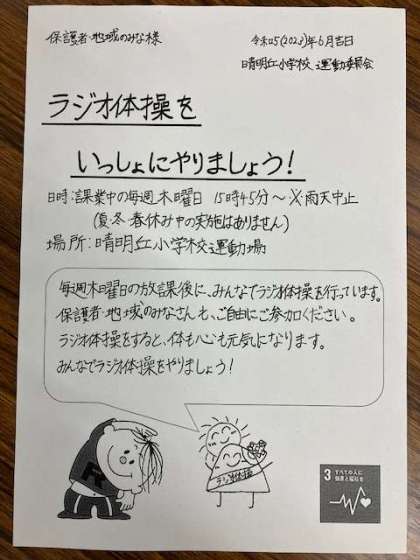 保護者・地域のみな様
令和5(2023)年6月吉日
晴明丘小学校 運動委員会
ラジオ体操を
いっしょにやりましょう!
日時:課業中の毎週木曜日 15時45分~ ※雨天中止
(夏・冬・春休み中の実施はありません)
場所:晴明丘小学校運動場
毎週木曜日の放課後に、みんなでラジオ体操を行っています。
保護者・地域のみなさんも、ご自由にご参加ください。
ラジオ体操をすると、体も心も元気になります。
みんなでラジオ体操をやりましょう!
R
ラジオ体操
3 すべての人に
健康と福祉を